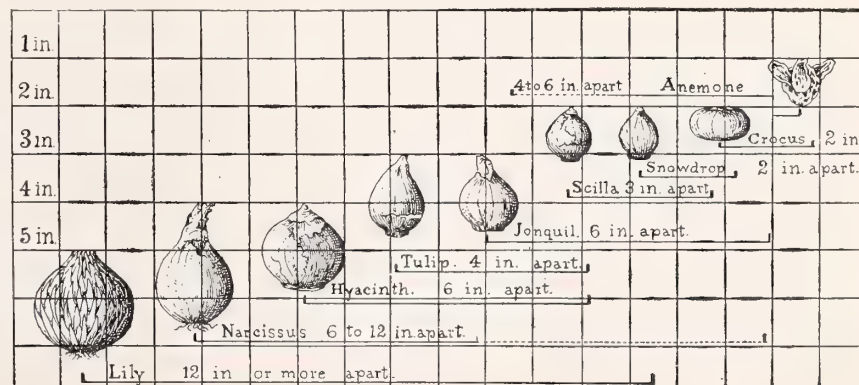 1 in.
2 in.
4 to 6 in. apart Anemone
3 in.
Crocus 2 in
Snowdrop 2 in. apart.
4 in.
Scilla 3 in. apart
5 in.
Jonquil. 6 in. apart.
Tulip. 4 in. apart.
Hyacinth. 6 in. apart.
Narcissus 6 to 12 in. apart.
Lily 12 in or more apart.